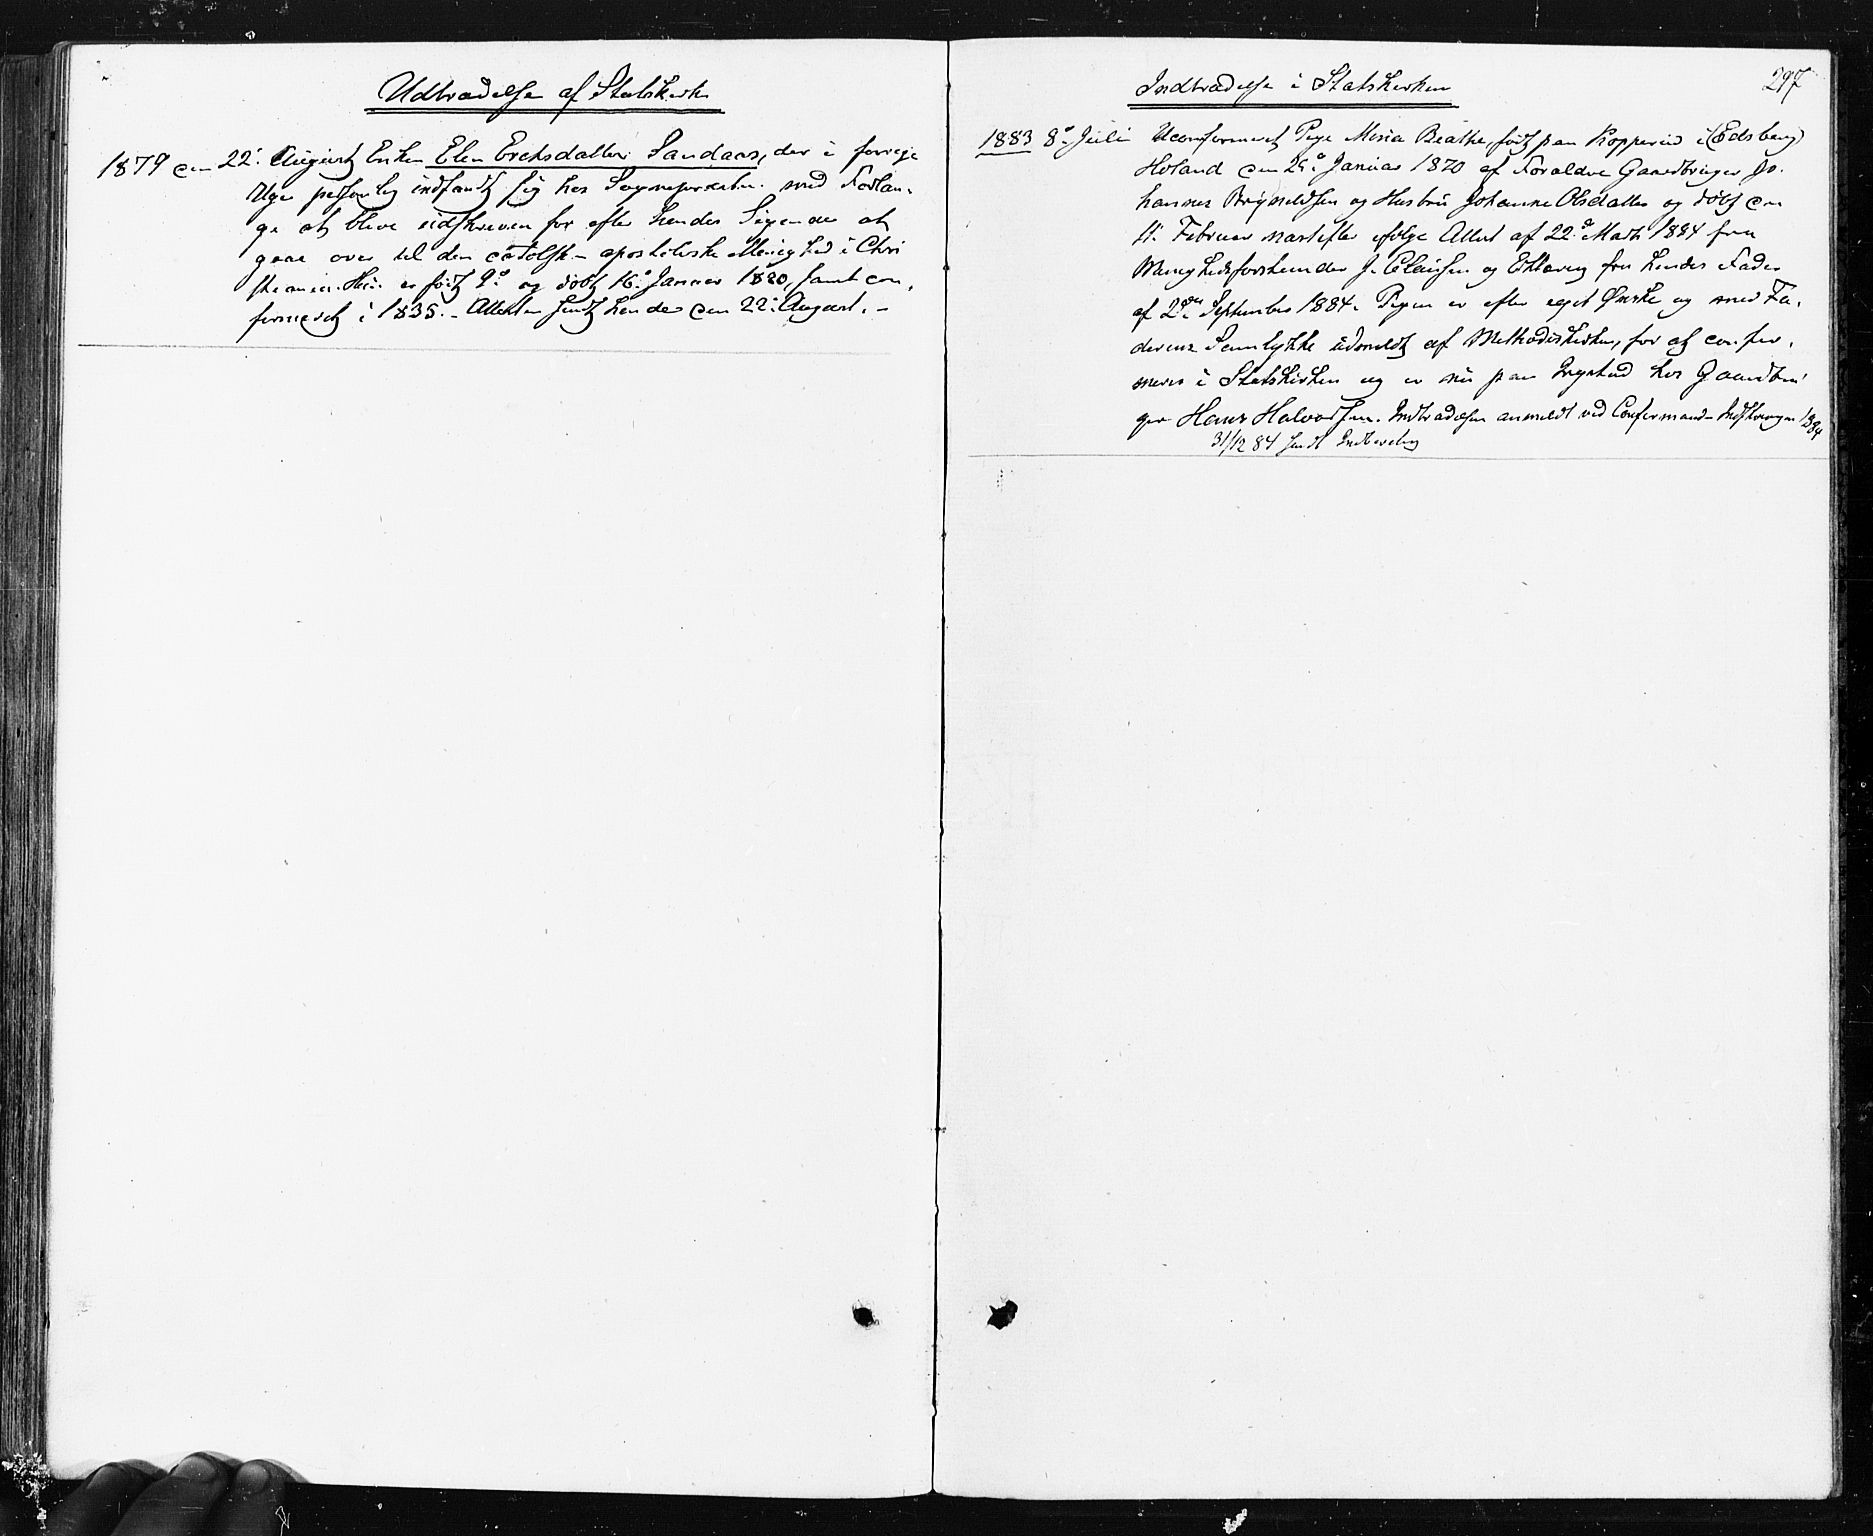 Udtrædelse af Statskirken
1879 den 22. August Enken Elen Erichsdatter Sandaas, der i forrige
Uge personlig indfandt sig hos Sognepræsten med Forlan-
ge at blive udskreven for efter hendes Sigende at
gaae over til den catolsk-apostoliske Menighed i Chri
stiania. Hun er født 9de og døbt 16de Januar 1820, samt con-
firmeret i 1835. - Attesten sendt hende den 22. August. -
Indtrædelse i Statskirken
297
1883 8de Juli Uconfirmeret Pige Maria Beathe, født paa Kopperud i (Edsberg)
Holand den 25de Januar 1870 af Forældre Gaardbruger Jo-
hannes Brynildsen og Hustru Johanne Olsdatter og døbt den
11. Februar næstefter ifølge Attest af 22de Marts 1884 fra
Menighedsforstander J. Clausen og Erklæring fra hendes Fader
af 2den September 1884. Pigen er efter eget Ønske og med Fa-
derens Samtykke udmeldt af Methodistkirken, for at confir-
meres i Statskirken og er nu paa hos Gaardbru-
ger Hans Halvorsen. Indtrædelsen anmeldt ved Confirmand-Indskrivningen 1884
31/12 84 sendt Indberetning